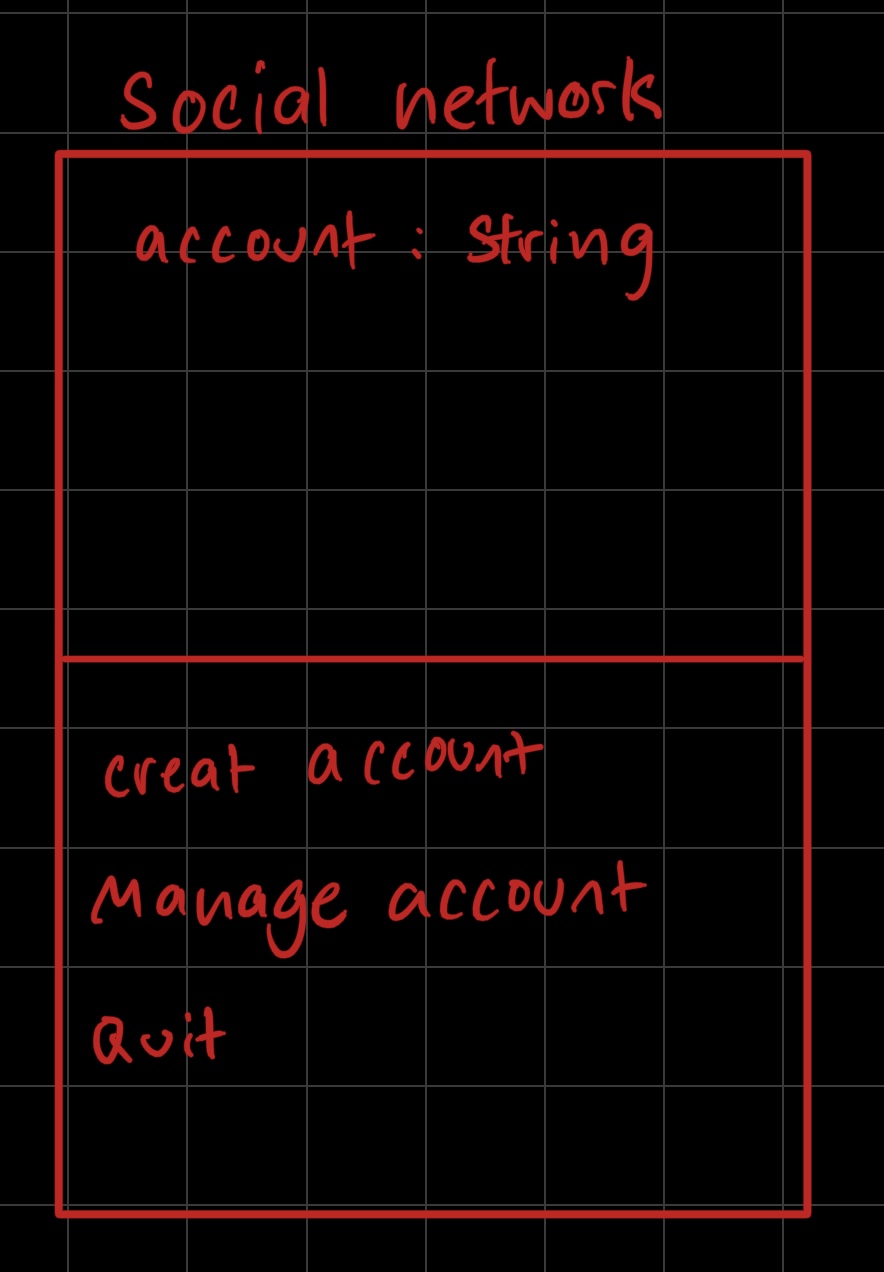 Social network
account : String
creat account
Manage account
Quit